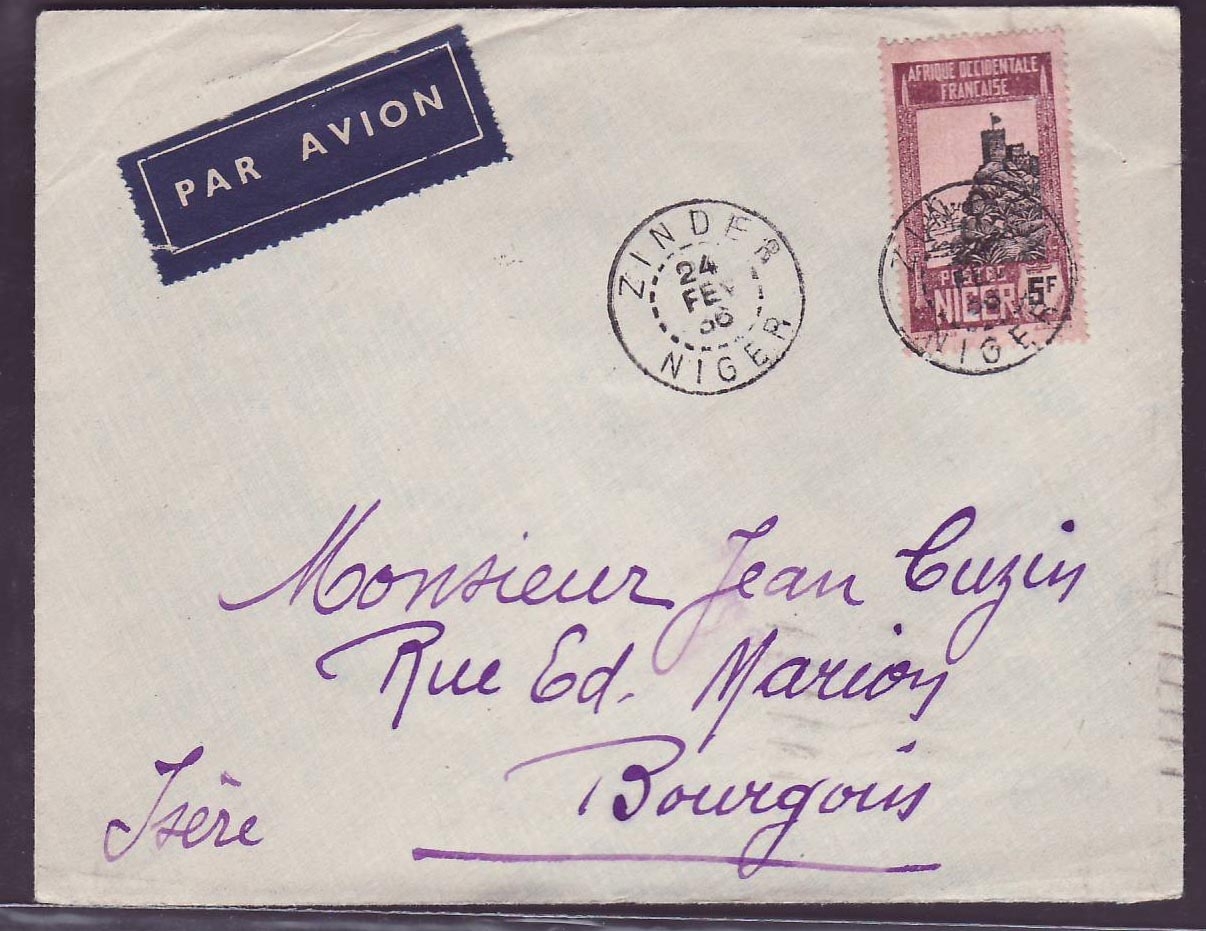 PAR AVION
AFRIQUE OCCIDENTALE
FRANÇAISE
POSTES
NIGER 5F
ZINDER
24
FEV
36
NIGER
ZIN
NIGER
Monsieur Jean Cuzin
Rue Ed. Marion
Bourgoin
Isère